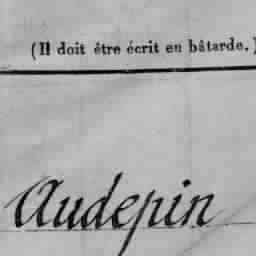 (Il doit être écrit en bâtarde.)
Audepin